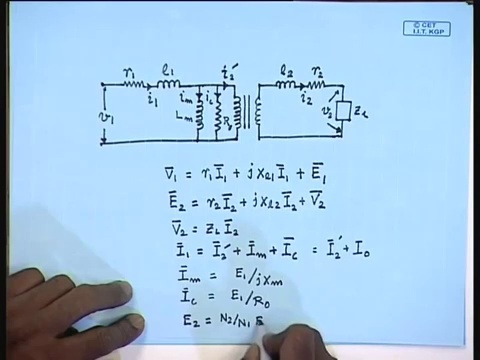 © CET
I.I.T. KGP
r₁ l₁ i₂′ l₂ r₂
i₁ iₘ i_c i₂
v₁ Lₘ R₀ v₂ Z_L
V̄₁ = r₁Ī₁ + jx_l₁Ī₁ + Ē₁
Ē₂ = r₂Ī₂ + jx_l₂Ī₂ + V̄₂
V̄₂ = Z_L Ī₂
Ī₁ = Ī₂′ + Īₘ + Ī_c = Ī₂′ + I₀
Īₘ = E₁/jxₘ
Ī_c = E₁/R₀
E₂ = N₂/N₁ E